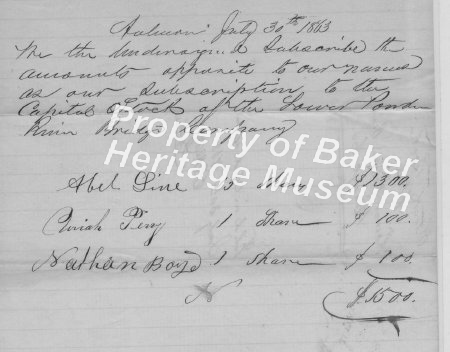 Auburn July 30th 1863
We the Undersigned Subscribe the
amounts opposite to our names
as our Subscription to the
Capital Stock of the Lower Powder
River Bridge Company
Property of Baker
Heritage Museum
Abel Line $1300.
Perry 1 Share $100.
Nathan Boyd 1 Share $100.
$1500.